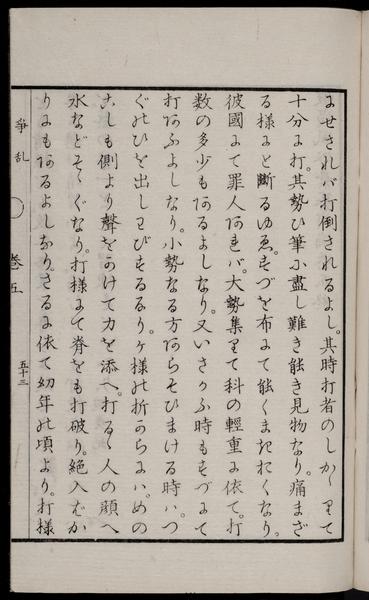 にせされバ打倒されるよし。其時打者のしかくりて
十分に打。其勢ひ筆に盡し難き能き見物なり。痛まざ
る様にと斷るゆゑ。もづを布にて能くまきおくなり。
彼國にて罪人あれバ。大勢集りて科の輕重に依て。打
数の多少もあるよしなり。又いさかふ時ももづにて
打あふよしなり。小勢なる方あらそひまける時ハ。つ
ぐのひを出しわびするなり。ヶ様の折からにハ。めの
こしも側より聲をかけて力を添へ。打るゝ人の顔へ
水などそゝぐなり。打様にて脊をも打破り。絶入ばか
りにもあるよしなり。さるに依て幼年の頃より。打様
爭乱
巻五
五十三